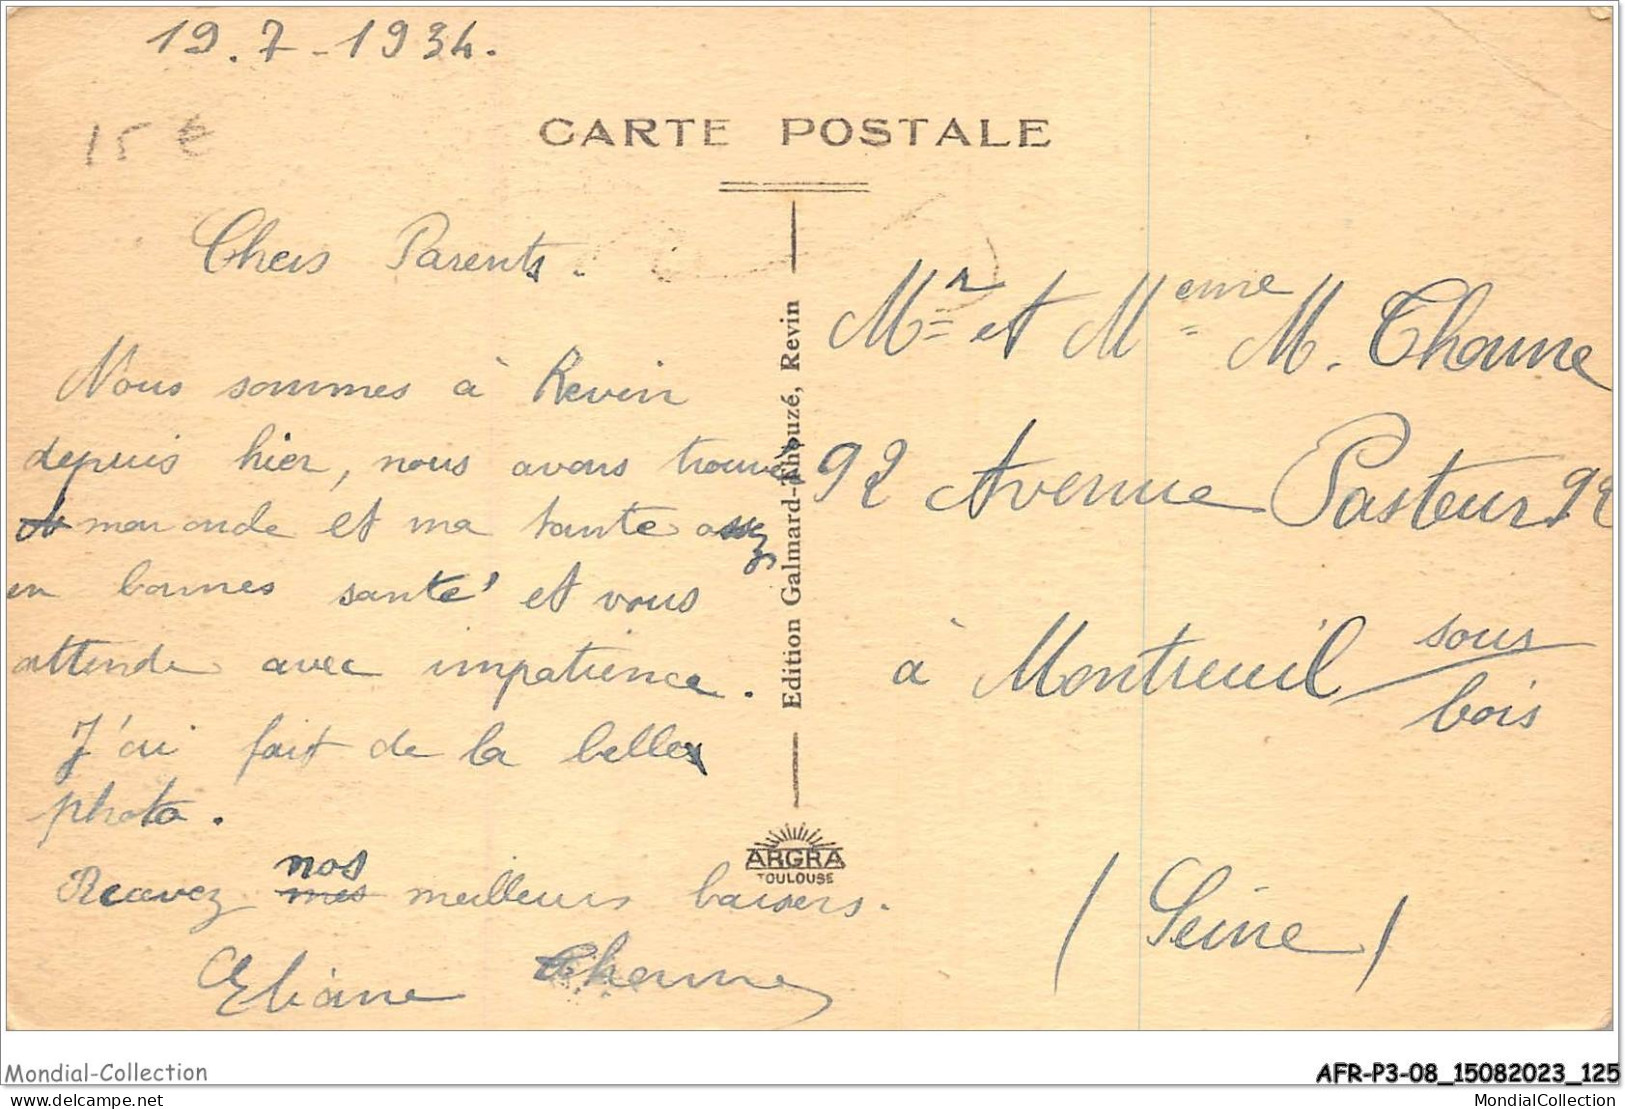 19.7-1934.
15 €
CARTE POSTALE
Chers Parents.
Nous sommes à Revin
depuis hier, nous avons trouvé
mon oncle et ma tante assez
en bonnes santé et vous
attende avec impatience.
J'ai fait de la belles
photo.
Recevez nos mes meilleurs baisers.
Eliane Thomme
Edition Galmard-Thouzé, Revin
ARGRA
TOULOUSE
Mr et Meme M. Thomme
92 Avenue Pasteur 92
à Montreuil sous
bois
(Seine)
Mondial-Collection
AFR-P3-08_15082023_125
delcampe.net
MondialCollection